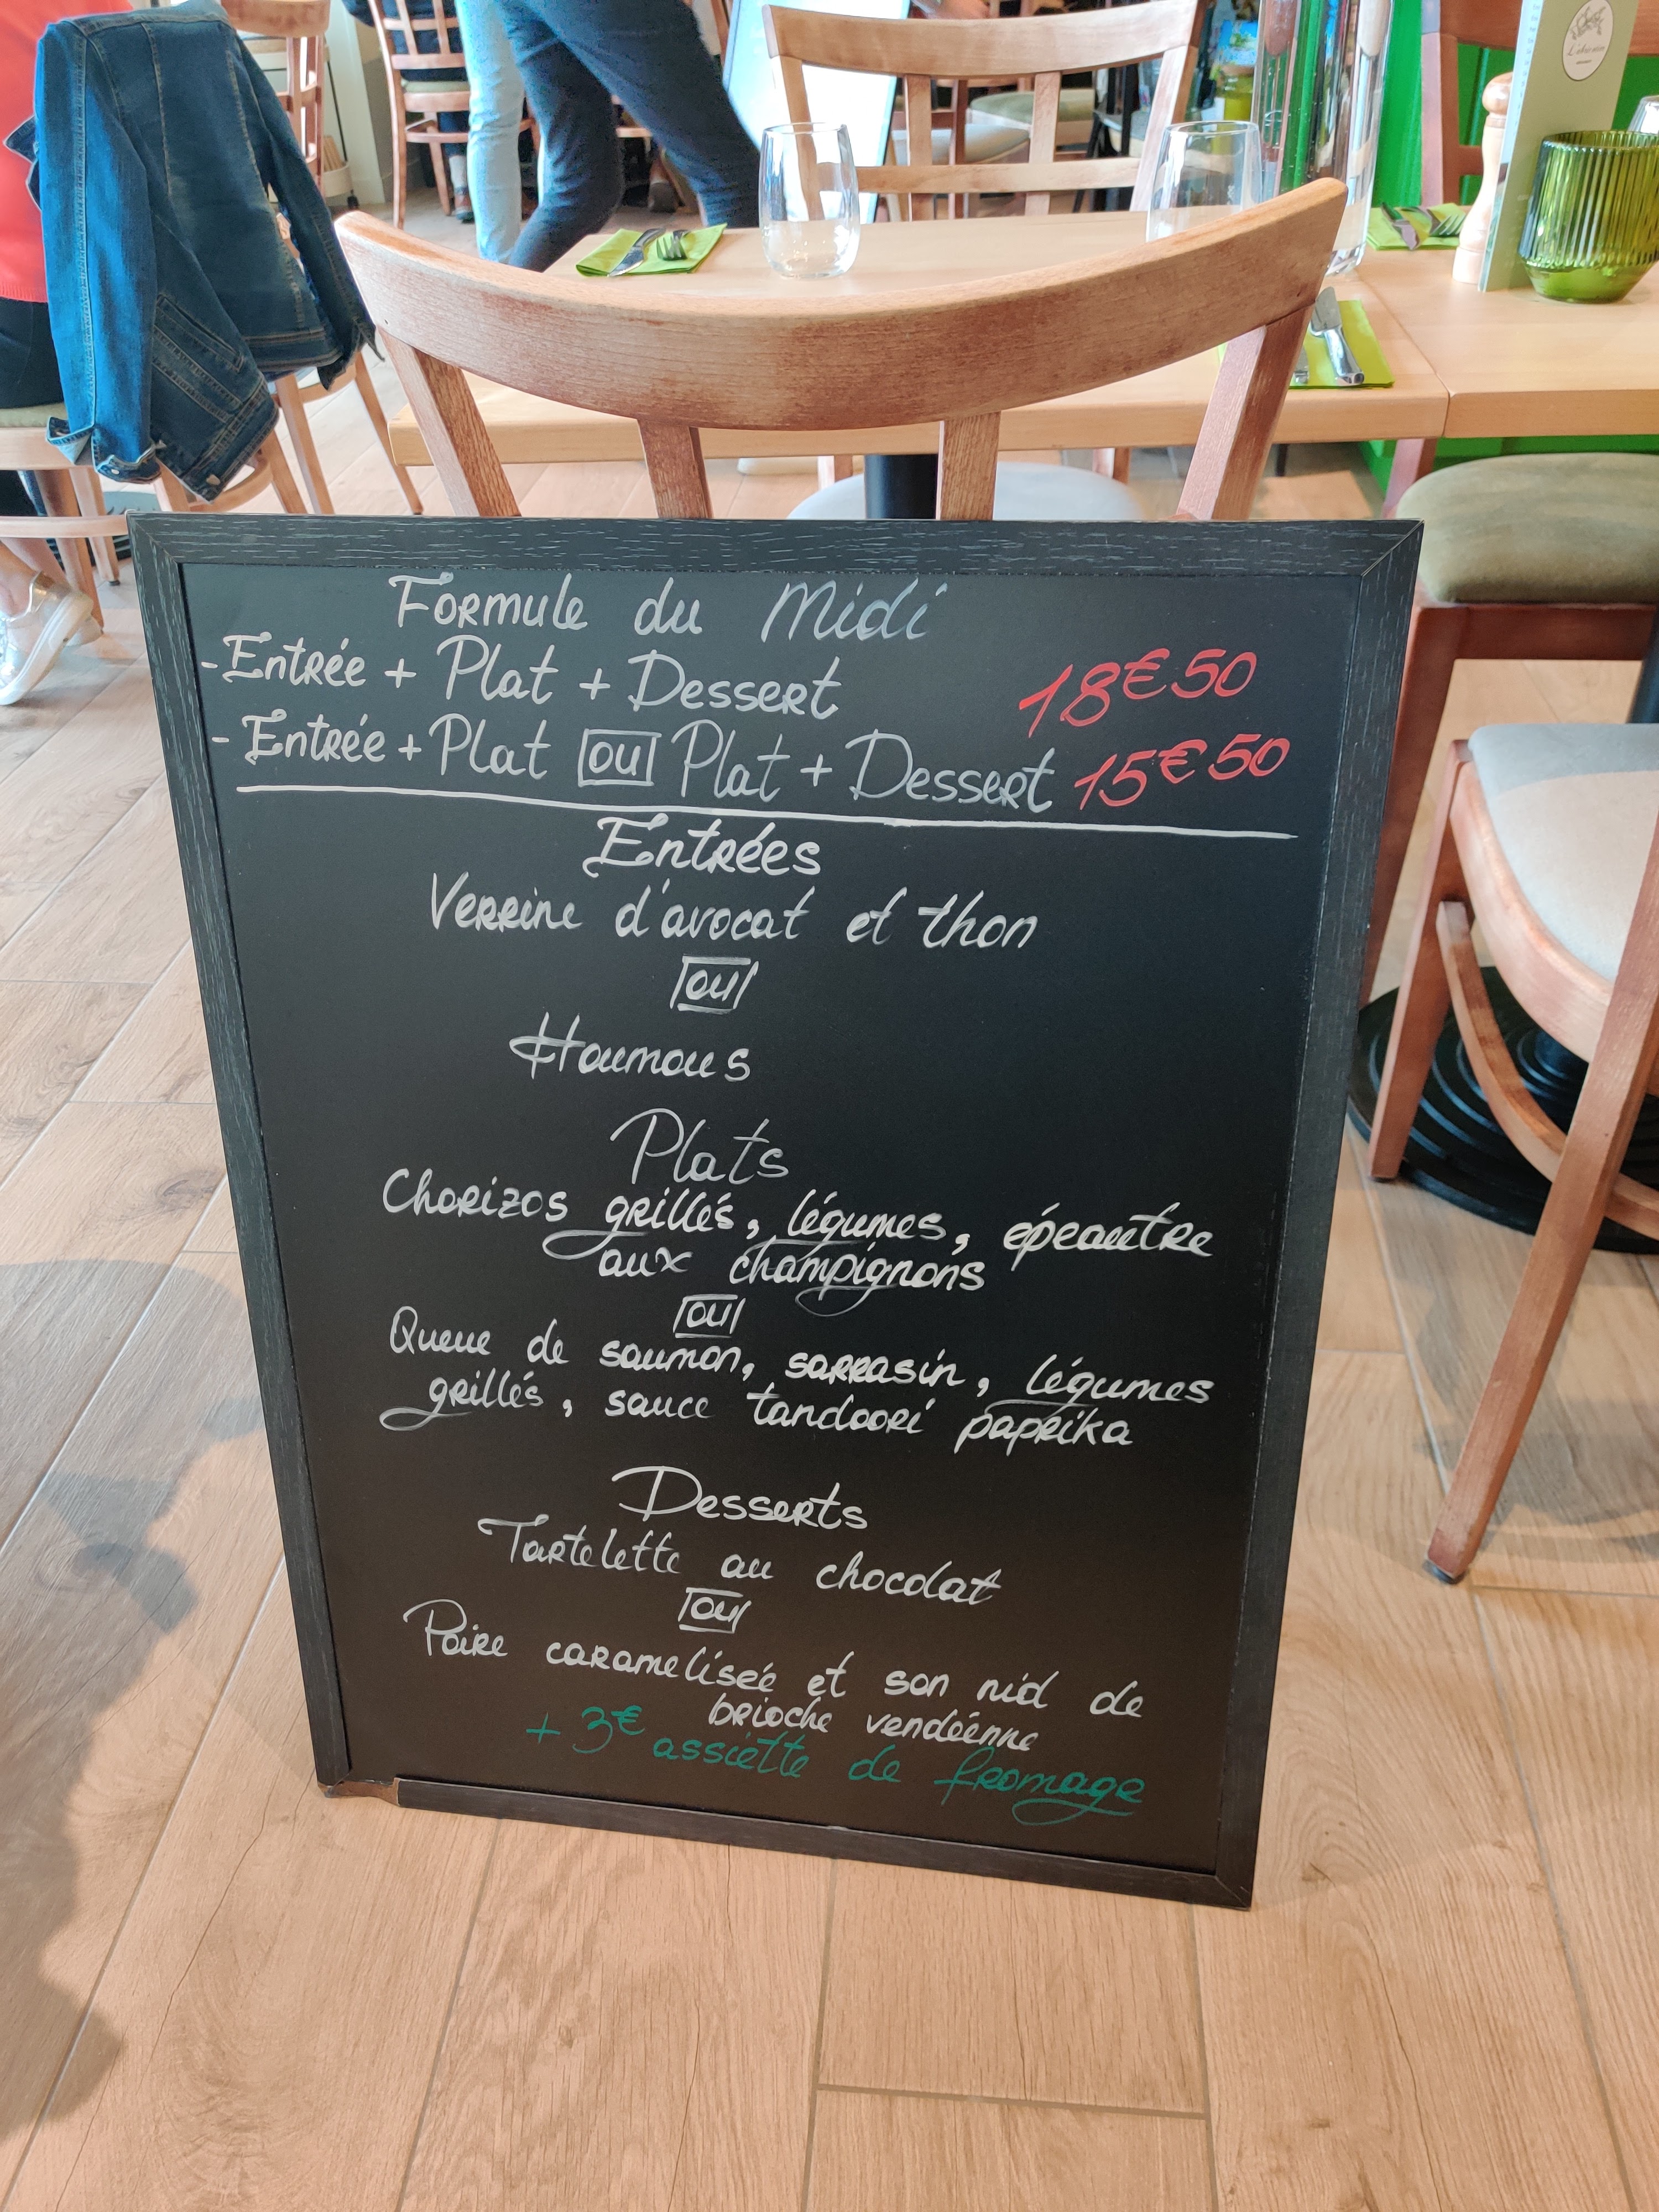 Formule du Midi
- Entrée + Plat + Dessert 18€50
- Entrée + Plat ou Plat + Dessert 15€50
Entrées
Verrine d'avocat et thon
ou
Houmous
Plats
Chorizos grillés, légumes, épeautre
aux champignons
ou
Queue de saumon, sarrasin, légumes
grillés, sauce tandoori paprika
Desserts
Tartelette au chocolat
ou
Poire caramelisée et son nid de
brioche vendéenne
+ 3€ assiette de fromage